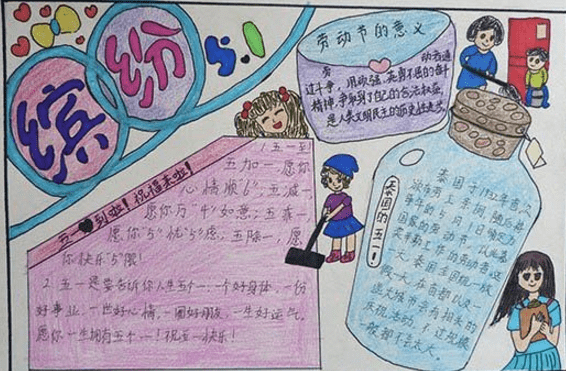 缤纷
5.1
劳动节的意义
劳动者通
过斗争,用顽强、英勇不屈的奋斗
精神,争取到了自己的合法权益,
是人类文明民主的历史性进步
五一到啦!祝福来啦!
1.五一到
五加一,愿你
心情顺“6”;五减一
愿你万“4”如意;五乘一
愿你“5”忧“5”虑;五除一,愿
你快乐“5”限!
2.五一是要告诉你人生五个一:一个好身体,一份
好事业,一世好心情,一圈好朋友,一生好运气。
愿你一生拥有五个一!祝五一快乐!
泰国的五一!
泰国于1932年首次
颁布劳工条例,随后将
每年的5月1日确定为
国家的劳动节,以此嘉
奖辛勤工作的劳动者这
一天,泰国全国统一放
假一天。在首都以及一
些大城市会有相关的
庆祝活动,不过规模
一般都不会太大。